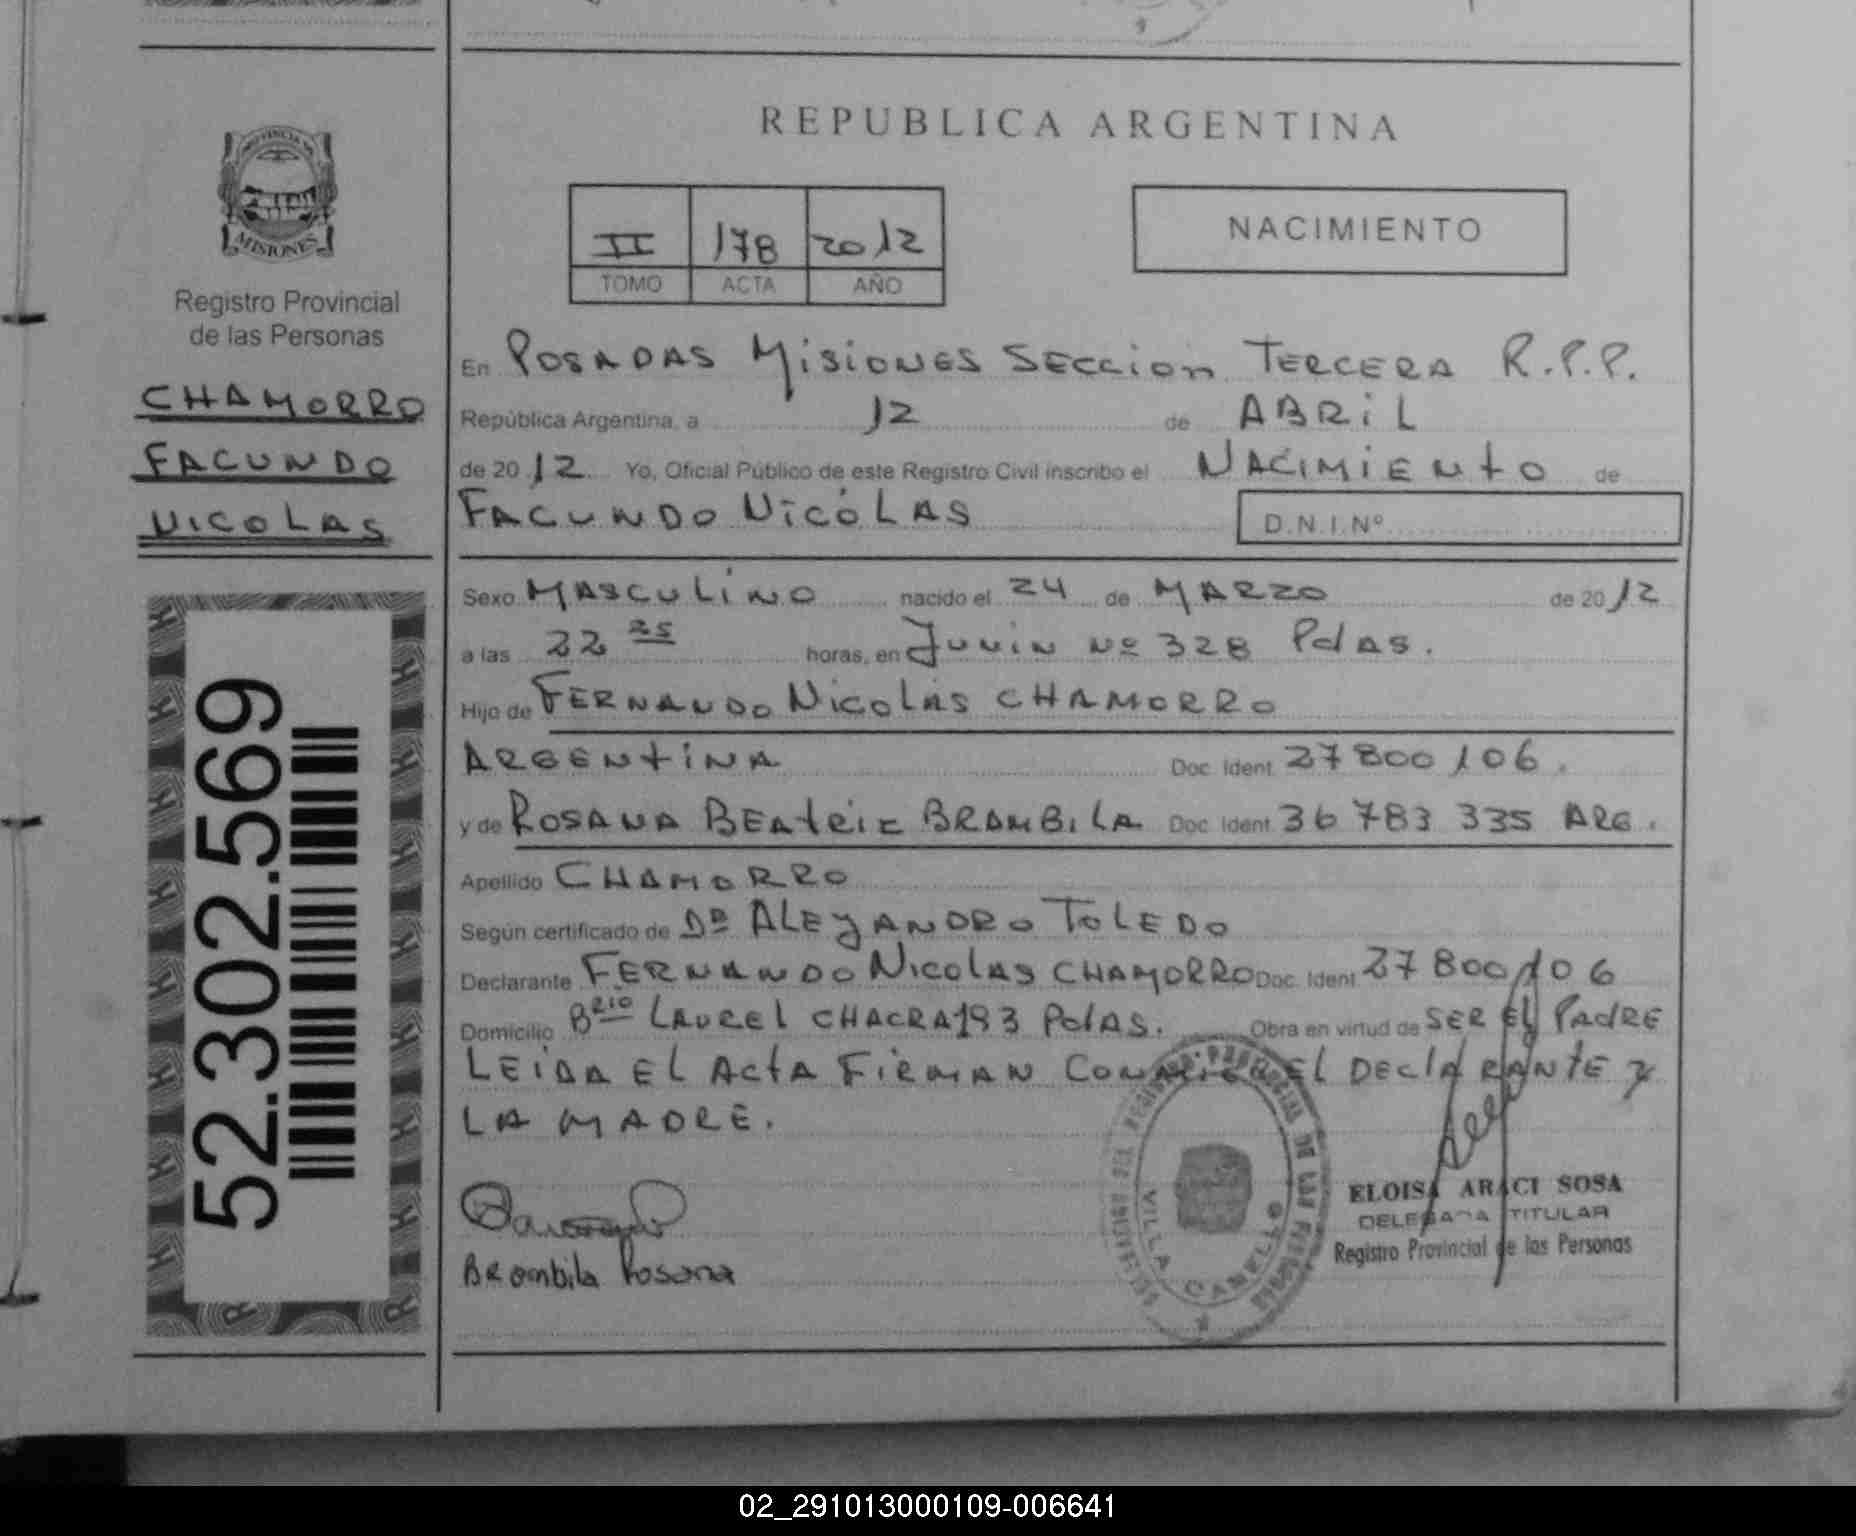 PROVINCIA DE
MISIONES
Registro Provincial
de las Personas
CHAMORRO
FACUNDO
NICOLAS
52.302.569
REPUBLICA ARGENTINA
II 178 2012
TOMO ACTA AÑO
NACIMIENTO
En POSADAS MISIONES SECCION TERCERA R.P.P.
República Argentina, a 12 de ABRIL
de 2012 Yo, Oficial Público de este Registro Civil inscribo el NACIMIENTO de
FACUNDO NICOLAS
D.N.I.Nº
Sexo MASCULINO nacido el 24 de MARZO de 2012
a las 22 25 horas, en JUNIN Nº 328 PdAS.
Hijo de FERNANDO NICOLAS CHAMORRO
ARGENTINA Doc. Ident. 27800106.
y de ROSANA BEATRIZ BRAMBILA Doc. Ident. 36 783 335 ARG.
Apellido CHAMORRO
Según certificado de DR ALEJANDRO TOLEDO
Declarante FERNANDO NICOLAS CHAMORRO Doc. Ident. 27800106
Domicilio BRIO LAUREL CHACRA 193 PdAS. Obra en virtud de SER EL PADRE
LEIDA EL ACTA FIRMAN CONMIGO EL DECLARANTE Y
LA MADRE.
Brambila Rosana
VILLA CABELLO
ELOISA ARACI SOSA
DELEGADA TITULAR
Registro Provincial de las Personas
02_291013000109-006641